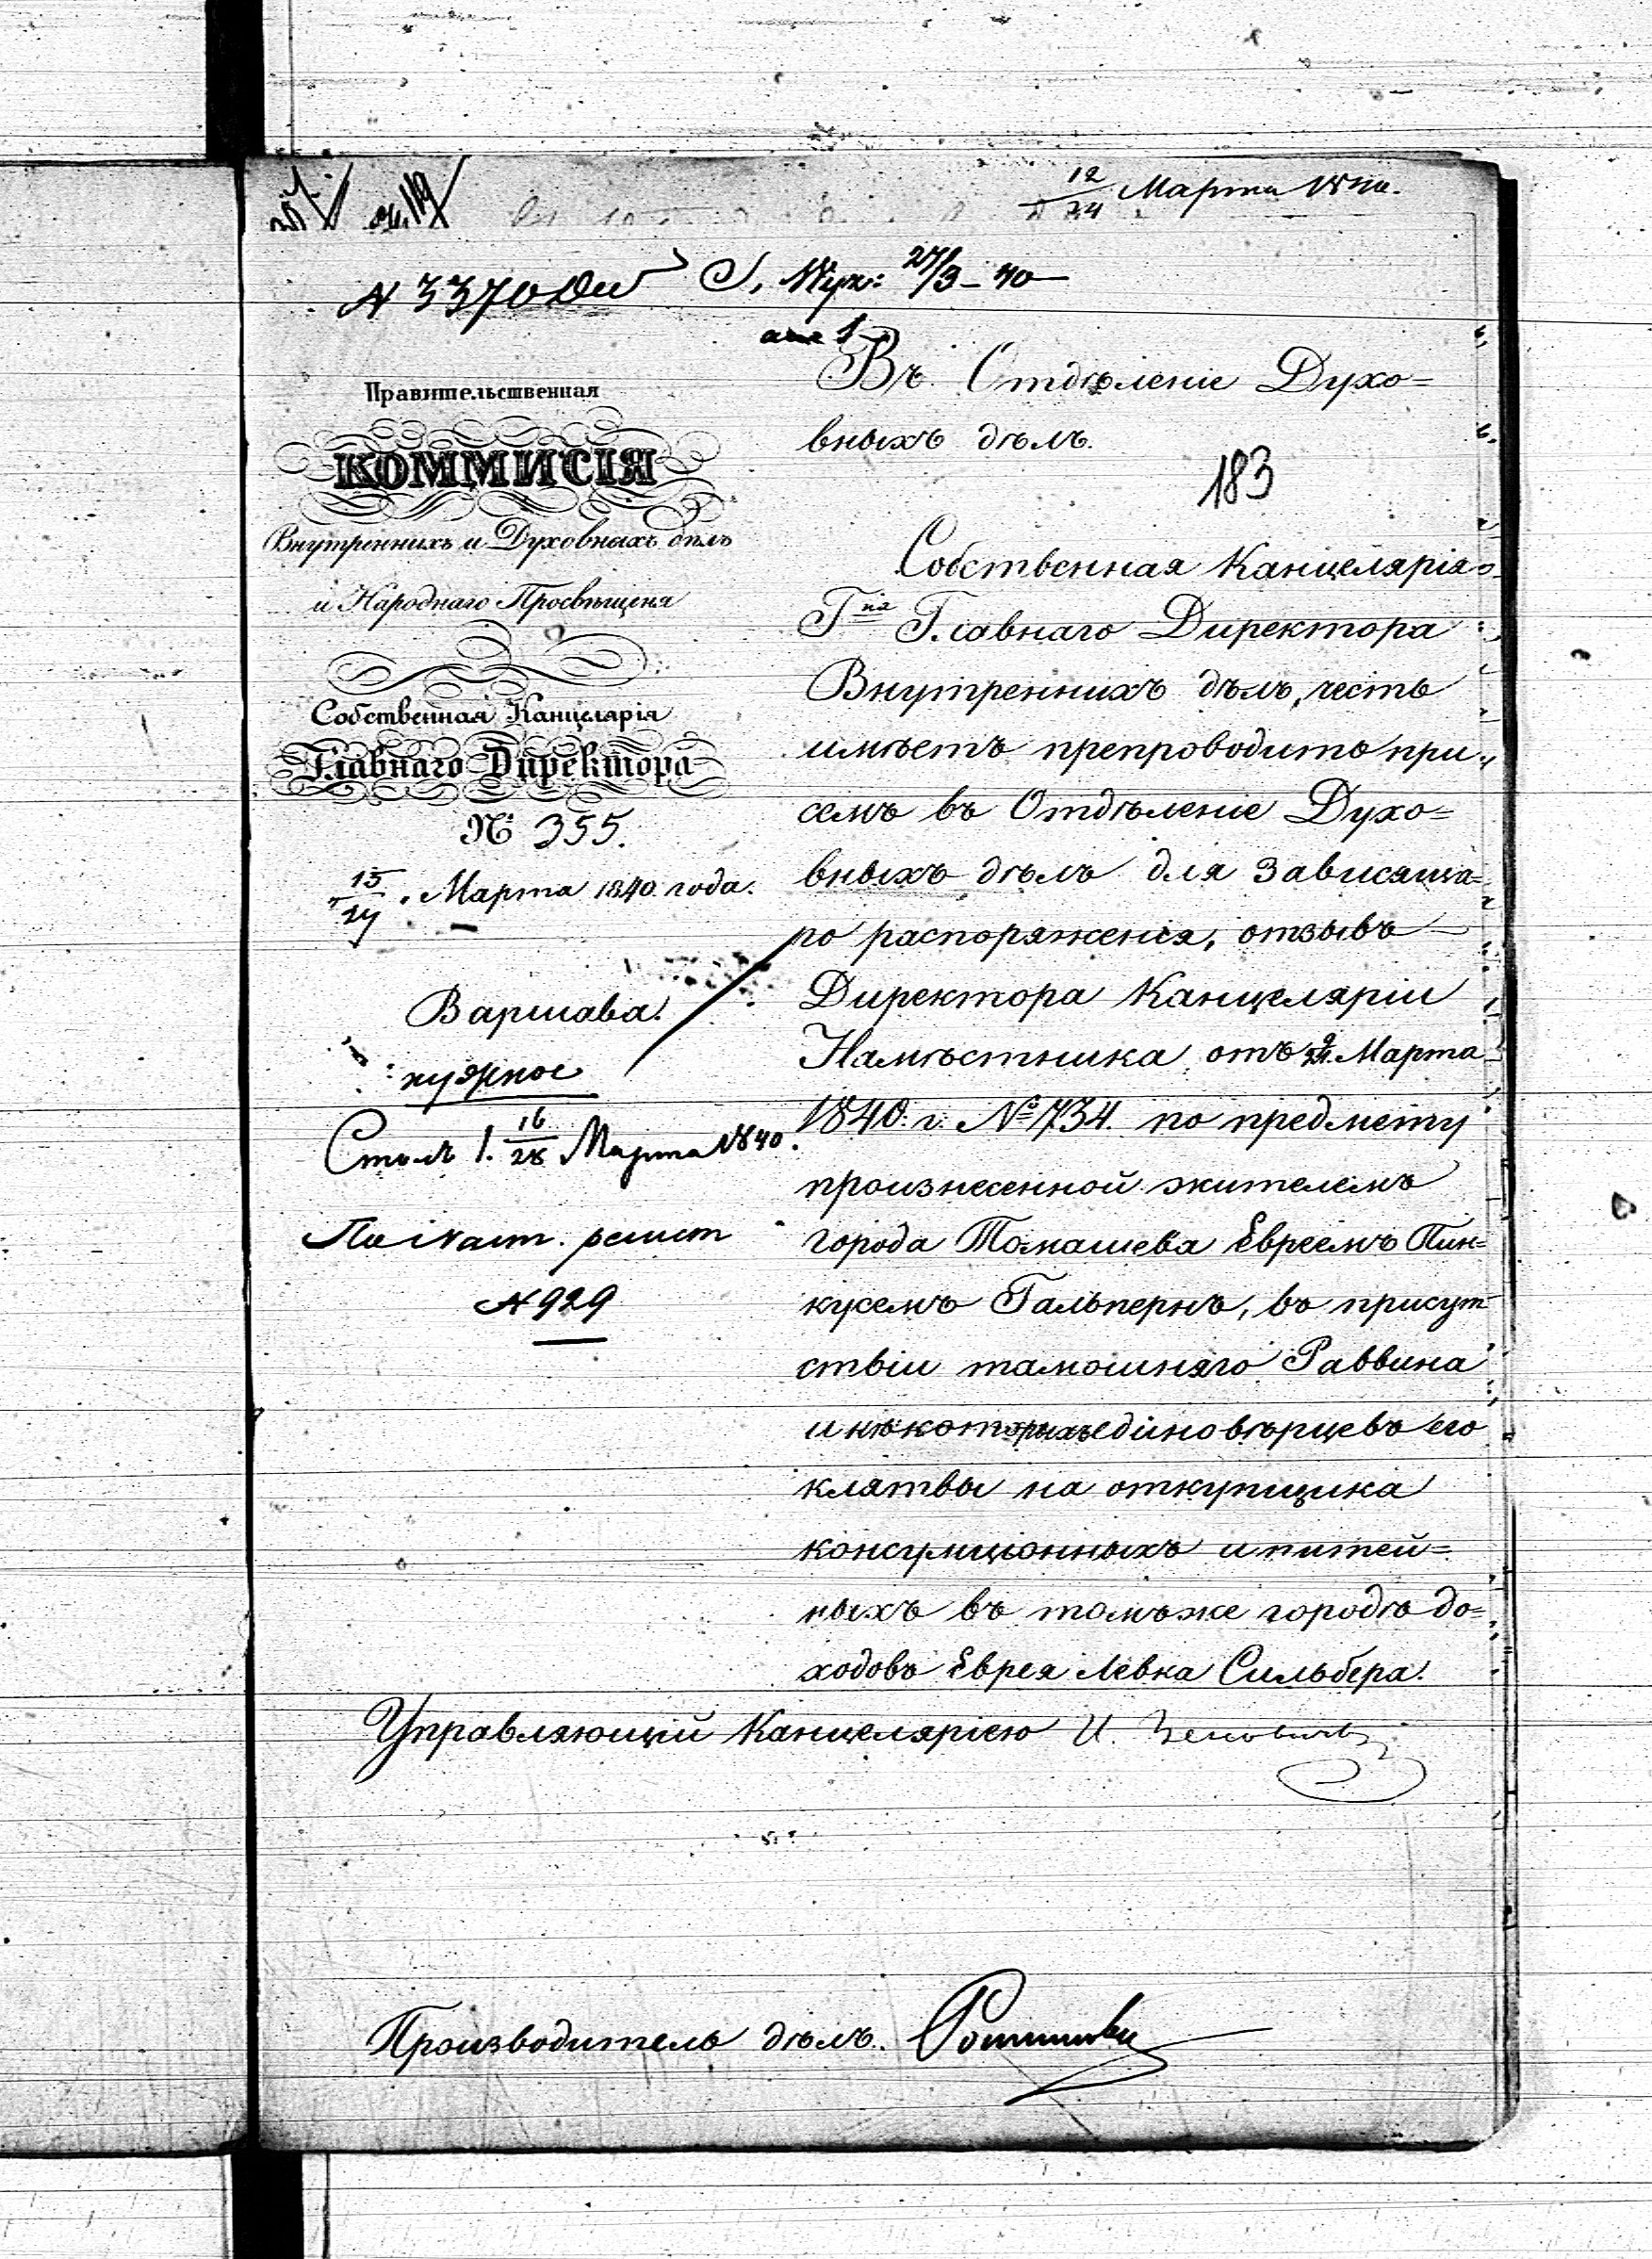 12/24 Марта 1840.
N 3370
27/3 - 40
Правительственная
КОММИСІЯ
Внутреннихъ и Духовныхъ дѣлъ
и Народнаго Просвѣщенія
Собственная Канцелярія
Главнаго Директора
№ 355.
15/27 Марта 1840 года.
Варшава.
нужное
Столъ 1. 16/28 Марта 1840.
N 929
Въ Отдѣленіе Духо=
вныхъ дѣлъ.
183
Собственная Канцелярія
Гна Главнаго Директора
Внутреннихъ дѣлъ, честь
имѣетъ препроводить при
семъ въ Отдѣленіе Духо=
вныхъ дѣлъ для зависяща=
го распоряженія, отзывъ
Директора Канцеляріи
Намѣстника отъ Марта
1840 г. № 734. по предмету
произнесенной жителемъ
города Томашева Евреемъ Пин=
кусемъ Гальпернъ, въ присут
ствіи тамошняго Раввина
и нѣкоторыхъ единовѣрцевъ его
клятвы на откупщика
консумціонныхъ и питей=
ныхъ въ томъ же городѣ до=
ходовъ Еврея Левка Сильбера.
Управляющій Канцеляріею И.
Производитель дѣлъ.